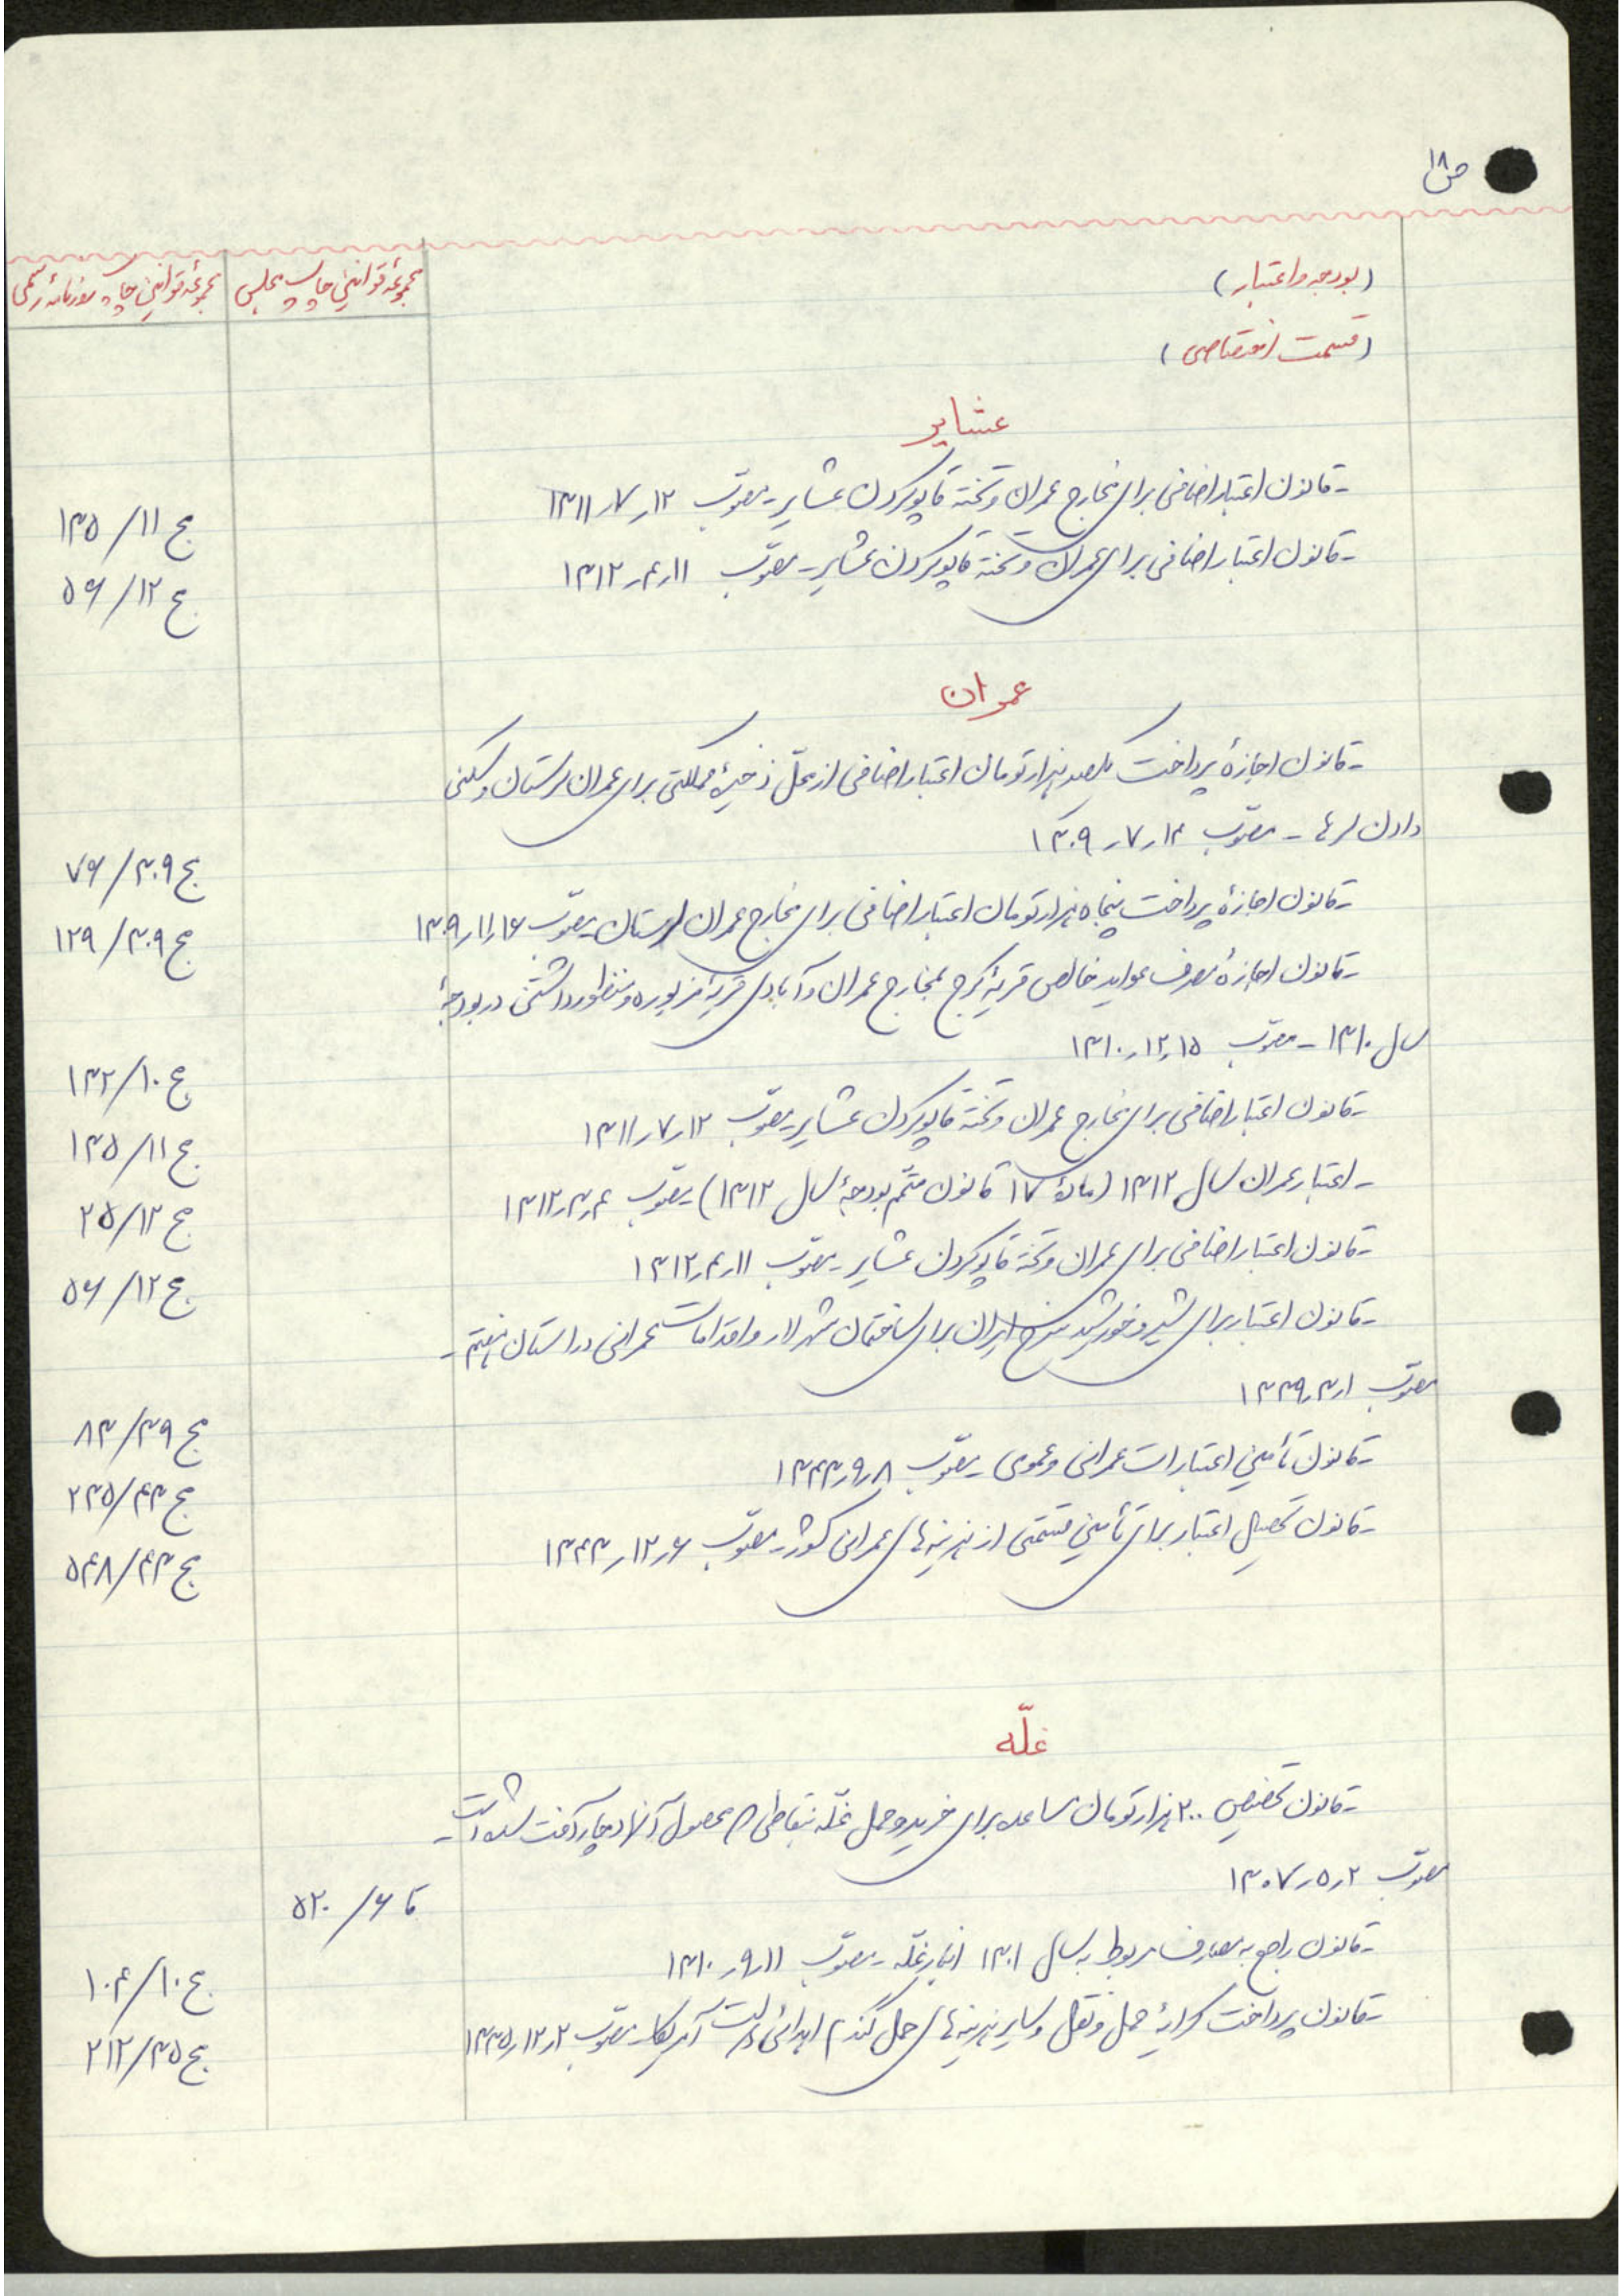 ص ۱۸
(بودجه و اعتبار)
(قسمت اختصاصی)
مجموعهٔ قوانین چاپ مجلس
مجموعهٔ قوانین چاپ روزنامهٔ رسمی
عشایر
- قانون اعتبار اضافی برای مخارج عمران و تخته قاپو کردن عشایر - مصوّب ۱۲ر۷ر۱۳۱۱
ج ۱۱/ ۱۳۵
- قانون اعتبار اضافی برای عمران و تخته قاپو کردن عشایر - مصوّب ۱۱ر۴ر۱۳۱۲
ج ۱۲/ ۵۶
عمران
- قانون اجازهٔ پرداخت یکصد هزار تومان اعتبار اضافی از محلّ ذخیرهٔ مملکتی برای عمران لرستان و سکنی
دادن لرها - مصوّب ۱۲ر۷ر۱۳۰۹
ج ۳۰۹/ ۷۶
- قانون اجازهٔ پرداخت پنجاه هزار تومان اعتبار اضافی برای مخارج عمران لرستان - مصوّب ۱۶ر۱۱ر۱۳۰۹
ج ۳۰۹/ ۱۲۹
- قانون اجازهٔ مصرف عواید خالص قریهٔ کرج بمخارج عمران و آبادی قریهٔ مزبوره و منظور داشتن در بودجهٔ
سال ۱۳۱۰ - مصوّب ۱۵ر۱۲ر۱۳۱۰
ج ۱۰/ ۱۴۲
- قانون اعتبار اضافی برای مخارج عمران و تخته قاپو کردن عشایر - مصوّب ۱۲ر۷ر۱۳۱۱
ج ۱۱/ ۱۳۵
- اعتبار عمران سال ۱۳۱۲ (مادهٔ ۱۷ قانون متمّم بودجهٔ سال ۱۳۱۲) - مصوّب ۴ر۳ر۱۳۱۲
ج ۱۲/ ۲۵
- قانون اعتبار اضافی برای عمران و تخته قاپو کردن عشایر - مصوّب ۱۱ر۴ر۱۳۱۲
ج ۱۲/ ۵۶
- قانون اعتبار برای شیر و خورشید سرخ ایران برای ساختمان شهر لار و اقدامات عمرانی در استان هفتم -
مصوّب ۱ر۳ر۱۳۳۹
ج ۳۹/ ۸۳
- قانون تأمین اعتبارات عمرانی و عمومی - مصوّب ۸ر۹ر۱۳۴۳
ج ۴۳/ ۲۳۵
- قانون تحصیل اعتبار برای تأمین قسمتی از هزینه‌های عمرانی کشور - مصوّب ۶ر۱۲ر۱۳۴۳
ج ۴۳/ ۵۴۸
غلّه
- قانون تخصیص ۲۰۰ هزار تومان مساعده برای خرید و حمل غلّه بنقاطی که محصول آنها دچار آفت شده است -
مصوّب ۲ر۵ر۱۳۰۷
قا ۶/ ۵۲۰
- قانون راجع به مصارف مربوط به سال ۱۳۰۱ انبار غلّه - مصوّب ۱۱ر۹ر۱۳۱۰
ج ۱۰/ ۱۰۴
- قانون پرداخت کرایهٔ حمل و نقل و سایر هزینه‌های حمل گندم اهدائی دولت آمریکا - مصوّب ۲ر۱۲ر۱۳۳۵
ج ۳۵/ ۲۱۲